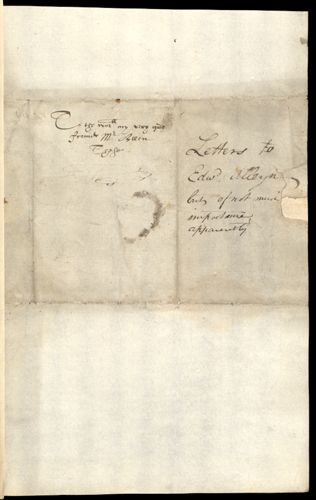 To the wor^ll my very good
friende M^r Allein
Letters to
Edw^d Alleyn
but of not much
importance
apparently